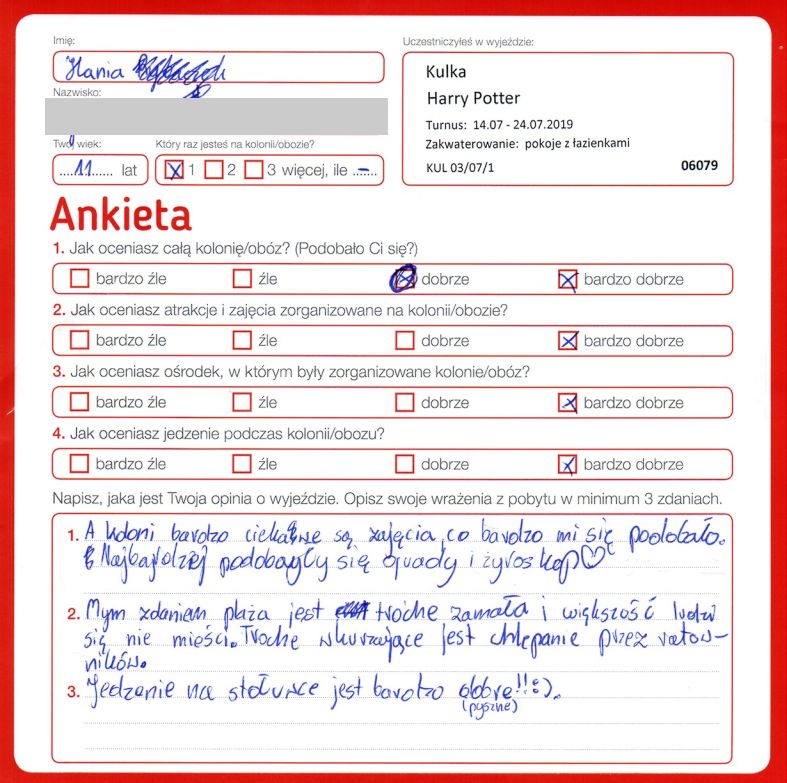 Imię:
Uczestniczyłeś w wyjeździe:
Hania
Kulka
Nazwisko:
Harry Potter
Turnus: 14.07 - 24.07.2019
Twój wiek:
Który raz jesteś na kolonii/obozie?
Zakwaterowanie: pokoje z łazienkami
....11...... lat
1 2 3 więcej, ile ..-....
KUL 03/07/1
06079
Ankieta
1. Jak oceniasz całą kolonię/obóz? (Podobało Ci się?)
bardzo źle źle dobrze bardzo dobrze
2. Jak oceniasz atrakcje i zajęcia zorganizowane na kolonii/obozie?
bardzo źle źle dobrze bardzo dobrze
3. Jak oceniasz ośrodek, w którym były zorganizowane kolonie/obóz?
bardzo źle źle dobrze bardzo dobrze
4. Jak oceniasz jedzenie podczas kolonii/obozu?
bardzo źle źle dobrze bardzo dobrze
Napisz, jaka jest Twoja opinia o wyjeździe. Opisz swoje wrażenia z pobytu w minimum 3 zdaniach.
1. A koloni bardzo ciekawe są zajęcia, co bardzo mi się podobało.
Najbardziej podobały się quady i żyroskop♡
2. Mym zdaniem plaża jest troche zamała i większość ludzi
się nie mieści. Troche wkurzające jest chlepanie przez ratow-
ników.
3. Jedzenie na stołuwce jest bardzo dobre!!:).
(pyszne)